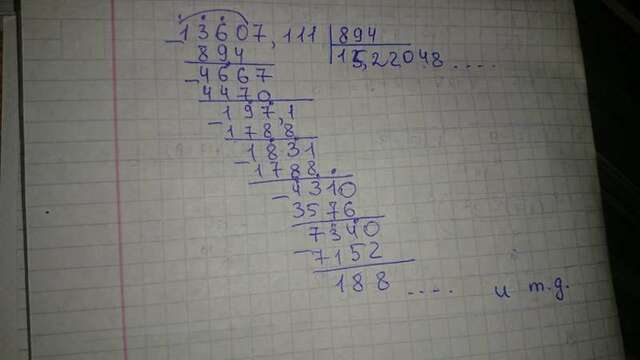 13607,111 | 894
894 | 15,22048 ....
4667
4470
197,1
1788
1831
1788
4310
3576
7340
7152
188 .... и т.д.